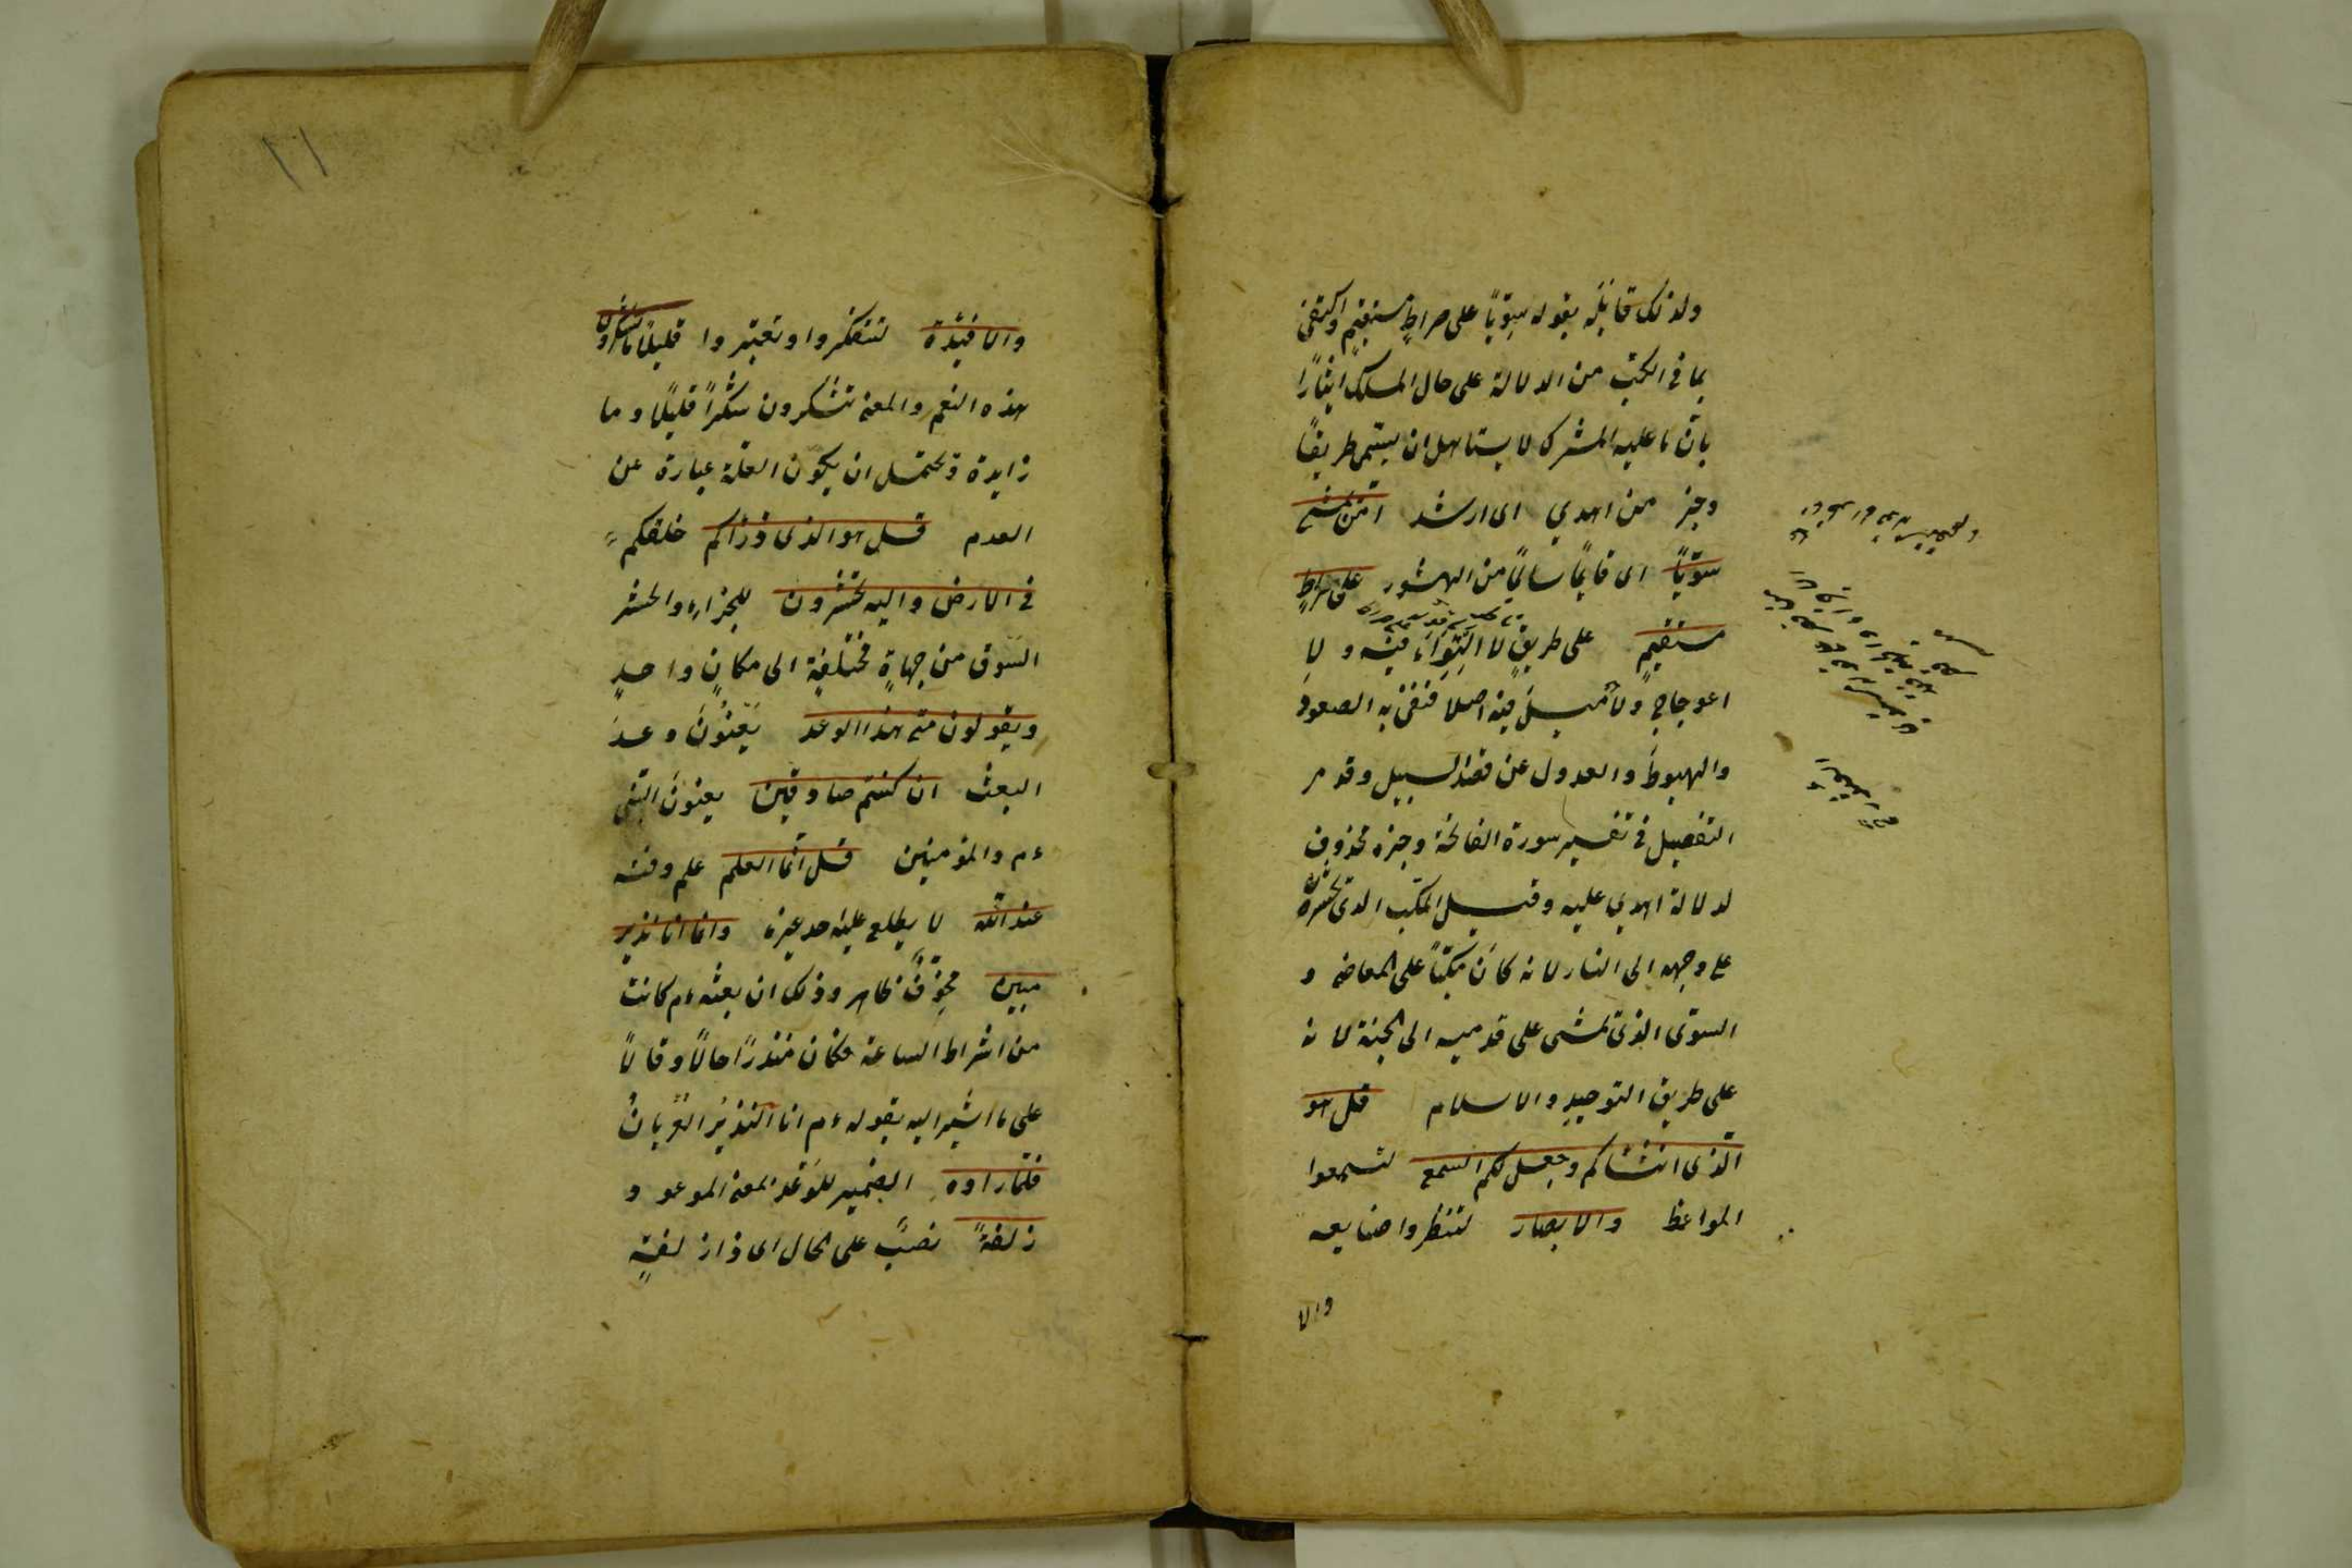 ولذلك قابَلَه بقوله سويّاً على صراطٍ مستقيمٍ واكتفى
بما في الكبّ من الدلالة على حال المسلك ايثاراً
بانّ ما عليه المشرك لا يستاهل ان يسمّى طريقاً
وخبر من اهدي اى ارشد امّن يمشي
سويّاً اى قايماً سالماً من العثور على صراطٍ
مستقيمٍ على طريقٍ لا التِوَاءَ فيه ولا
اعوجاج ولا ميل فيه اصلا فنفى به الصعود
والهبوط والعدول عن قصد السبيل وقد مر
التفصيل في تفسير سورة الفاتحة وخبره محذوف
لدلالة اهدي عليه وقيل المكبّ الذى يحشر
على وجهه الى النار لانه كان مكبّاً على المعاصى و
السوىّ الذى يمشى على قدميه الى الجنة لانه
على طريق التوحيد والاسلام قل هو
الّذى انشاكم وجعل لكم السمع لتسمعوا
المواعظ والابصار لتنظروا صنايعه
والا
١١
والافئدة لتتفكروا وتعتبروا قليلاً ما تشكرون
هذه النعم والمعنى تشكرون شكراً قليلاً وما
زايدة ويحتمل ان يكون القلّة عبارة عن
العدم قل هو الذى ذرأكم خلقكم
في الارض واليه تحشرون للجزاء والحشر
السّوق من جهاةٍ مختلفةٍ الى مكانٍ واحدٍ
ويقولون متى هذا الوعد يَعْنُوْنَ وعدَ
البعث ان كنتم صادقين يعنون النبى
ءم والمؤمنين قل انّما العلم علم وقته
عند الله لا يطلع عليه احد غيره وانما انا نذير
مبين مخوّفٌ ظاهر وذلك ان بعثه ءم كانت
من اشراط الساعة فكان منذراً حالاً وقالاً
على ما اشير اليه بقوله ءم انا النذيرُ العُرْيانُ
فلمّا راوه الضمير للوَعْد بمعنى الموعود
زلفةً نصبٌ على الحال اى ذا زلفةٍ